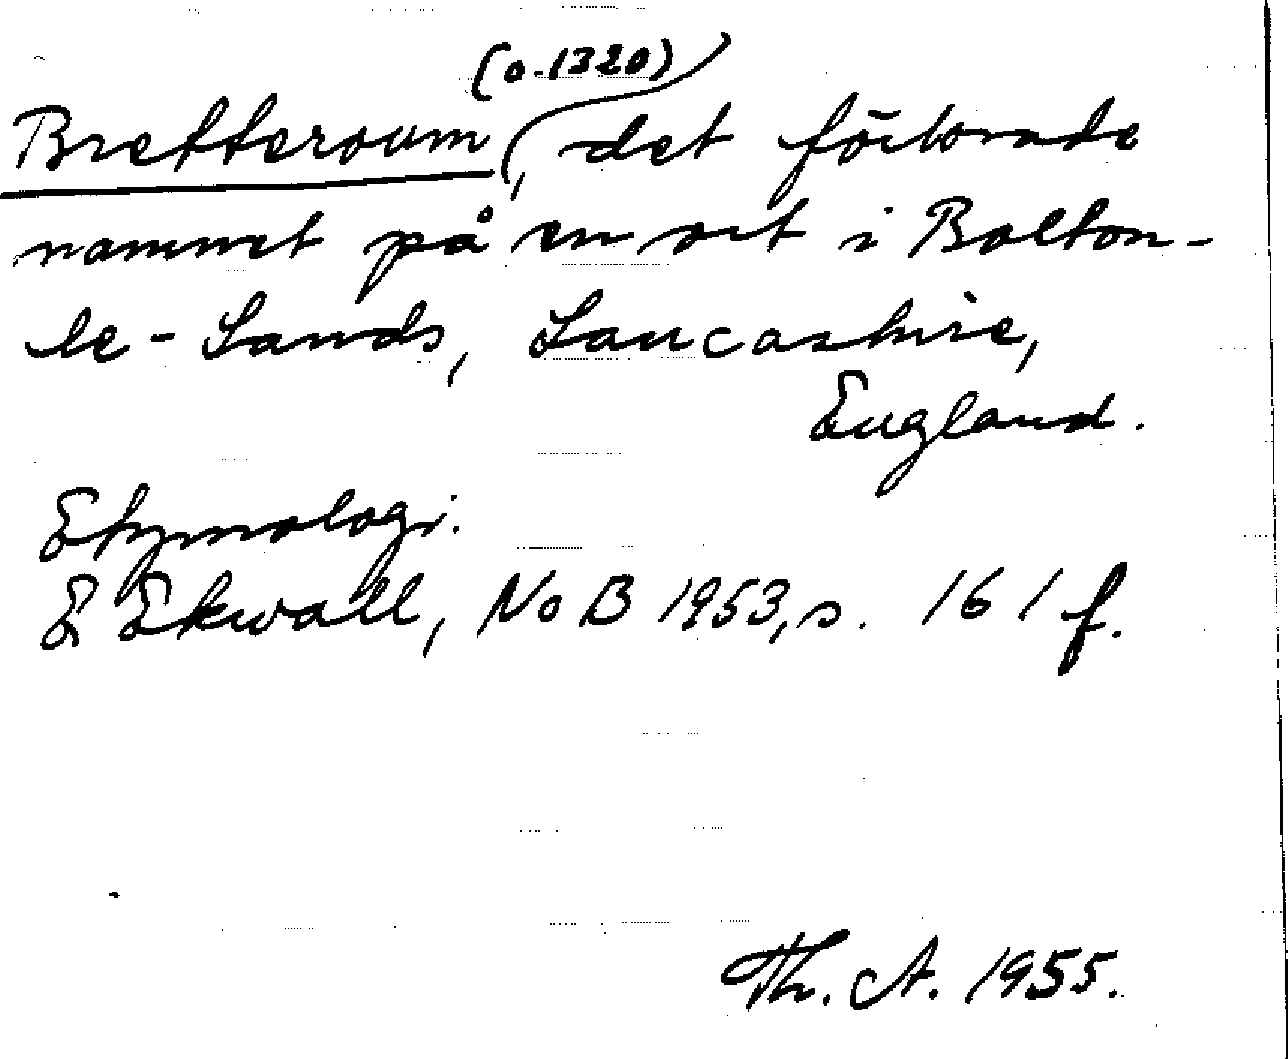 Bretteroum (o. 1320), det förlorade
namnet på en ort i Bolton-
le-Sands, Lancashire,
England.
Etymologi.
E Ekwall, NoB 1953, s. 161 f.
Th. A. 1955.